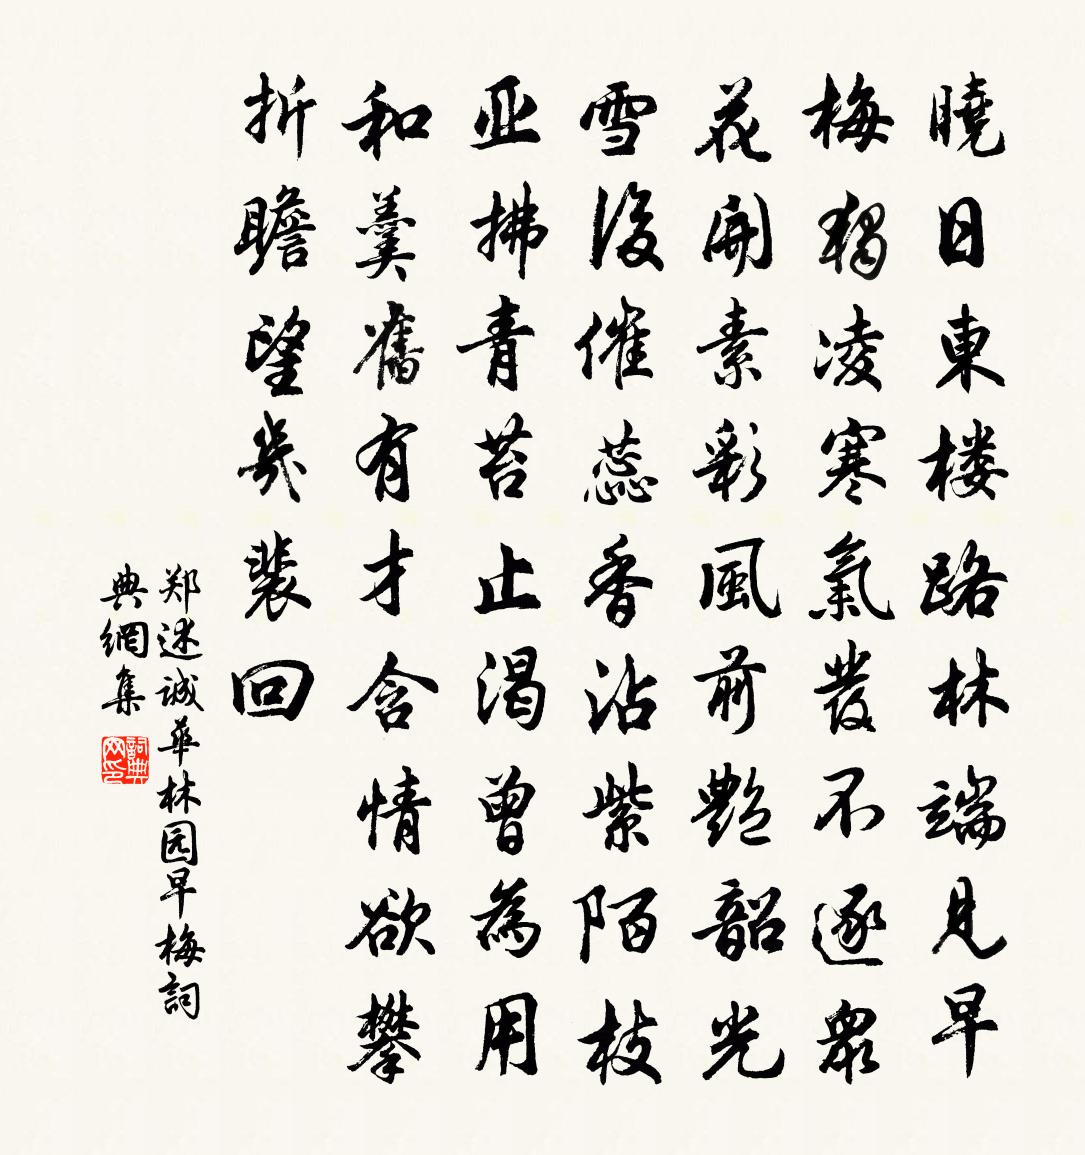 曉日東楼路林端見早
梅獨凌寒氣發不逐眾
花開素彩風前艷韶光
雪後催蕊香沾紫陌枝
亚拂青苔止渴曾為用
和羹舊有才含情欲攀
折瞻望幾裴回
郑述诚華林园早梅詞
典網集
詞典网印